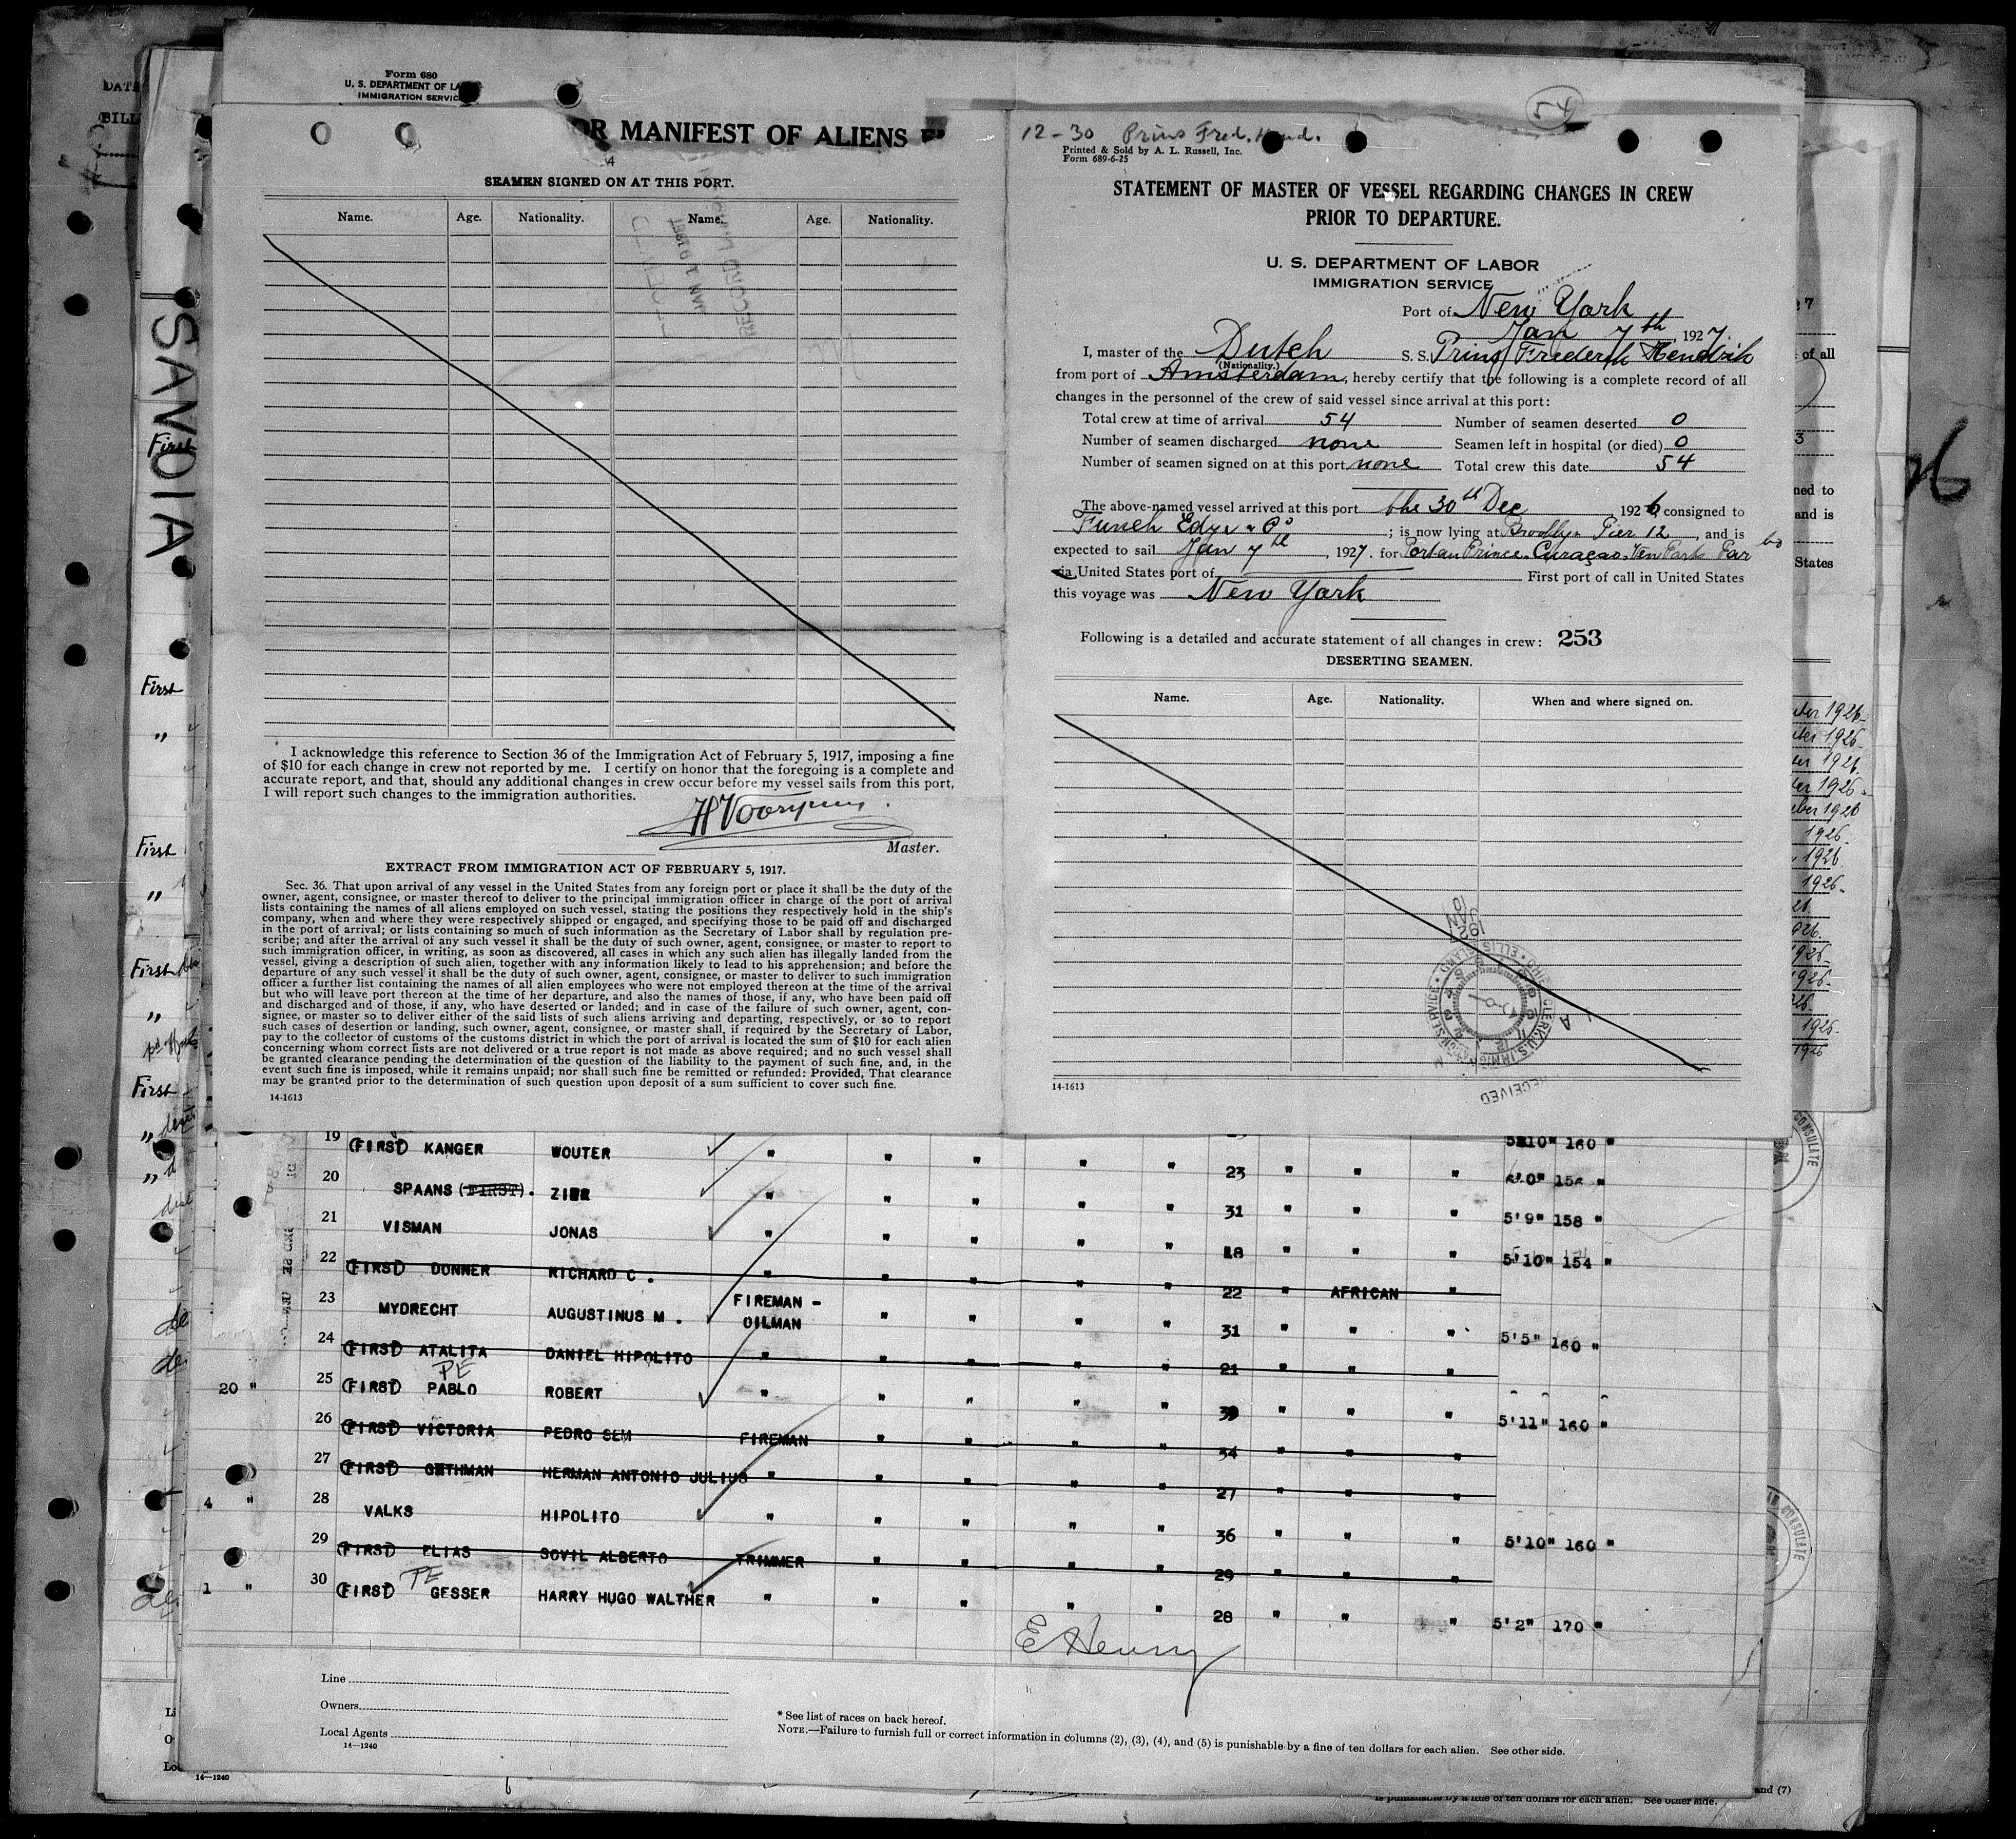 Form 680
U. S. DEPARTMENT OF LA
IMMIGRATION SERVIC
OR MANIFEST OF ALIENS
4
SEAMEN SIGNED ON AT THIS PORT.
Name. Age. Nationality. Name. Age. Nationality.
I acknowledge this reference to Section 36 of the Immigration Act of February 5, 1917, imposing a fine
of $10 for each change in crew not reported by me. I certify on honor that the foregoing is a complete and
accurate report, and that, should any additional changes in crew occur before my vessel sails from this port,
I will report such changes to the immigration authorities.
Master.
EXTRACT FROM IMMIGRATION ACT OF FEBRUARY 5, 1917.
Sec. 36. That upon arrival of any vessel in the United States from any foreign port or place it shall be the duty of the
owner, agent, consignee, or master thereof to deliver to the principal immigration officer in charge of the port of arrival
lists containing the names of all aliens employed on such vessel, stating the positions they respectively hold in the ship's
company, when and where they were respectively shipped or engaged, and specifying those to be paid off and discharged
in the port of arrival; or lists containing so much of such information as the Secretary of Labor shall by regulation pre-
scribe; and after the arrival of any such vessel it shall be the duty of such owner, agent, consignee, or master to report to
such immigration officer, in writing, as soon as discovered, all cases in which any such alien has illegally landed from the
vessel, giving a description of such alien, together with any information likely to lead to his apprehension; and before the
departure of any such vessel it shall be the duty of such owner, agent, consignee, or master to deliver to such immigration
officer a further list containing the names of all alien employees who were not employed thereon at the time of the arrival
but who will leave port thereon at the time of her departure, and also the names of those, if any, who have been paid off
and discharged and of those, if any, who have deserted or landed; and in case of the failure of such owner, agent, con-
signee, or master so to deliver either of the said lists of such aliens arriving and departing, respectively, or so to report
such cases of desertion or landing, such owner, agent, consignee, or master shall, if required by the Secretary of Labor,
pay to the collector of customs of the customs district in which the port of arrival is located the sum of $10 for each alien
concerning whom correct lists are not delivered or a true report is not made as above required; and no such vessel shall
be granted clearance pending the determination of the question of the liability to the payment of such fine, and, in the
event such fine is imposed, while it remains unpaid; nor shall such fine be remitted or refunded: Provided, That clearance
may be granted prior to the determination of such question upon deposit of a sum sufficient to cover such fine.
14-1613
54
12-30 Prins Fred. Hend.
Printed & Sold by A. L. Russell, Inc.
Form 689-6-25
STATEMENT OF MASTER OF VESSEL REGARDING CHANGES IN CREW
PRIOR TO DEPARTURE.
U. S. DEPARTMENT OF LABOR
IMMIGRATION SERVICE
Port of New York
Jan 7th, 1927.
I, master of the Dutch S. S. Prins Frederik Hendrik
(Nationality.)
from port of Amsterdam, hereby certify that the following is a complete record of all
changes in the personnel of the crew of said vessel since arrival at this port:
Total crew at time of arrival 54 Number of seamen deserted 0
Number of seamen discharged none Seamen left in hospital (or died) 0
Number of seamen signed on at this port none Total crew this date 54
The above-named vessel arrived at this port the 30th Dec 1926, consigned to
Funch Edye & Co; is now lying at Brooklyn Pier 12, and is
expected to sail Jan 7th, 1927. for Port au Prince. Curaçao. Ven
via United States port of First port of call in United States
this voyage was New York
Following is a detailed and accurate statement of all changes in crew: 253
DESERTING SEAMEN.
Name. Age. Nationality. When and where signed on.
14-1613
SANDIA
First
First
First
First
First
19 (FIRST) KANGER WOUTER " " " " " 23 " " " 5'10" 160 "
20 SPAANS (FIRST). " " " " " 31 " " " 6'0" 156 "
21 VISMAN JONAS " " " " " 18 " " " 5'9" 158 "
22 (FIRST) DONNER RICHARD C. " " " " " 22 " AFRICAN " 5'10" 154 "
23 MYDRECHT AUGUSTINUS M. FIREMAN-OILMAN " " " " 31 " " " 5'5" 160 "
24 (FIRST) ATALITA DANIEL HIPOLITO " " " " " 21 " " "
PE
20 " 25 (FIRST) PABLO ROBERT " " " " " " " " 5'11" 160 "
26 (FIRST) VICTORIA PEDRO SEM FIREMAN " " " " 34 " " "
27 (FIRST) HERMAN ANTONIO JULIUS " " " " " 27 " " "
4 " 28 VALKS HIPOLITO " " " " " 36 " " " 5'10" 160 "
29 (FIRST) ELIAS SOVIL ALBERTO TRIMMER " " " " 29 " " "
PE
1 " 30 (FIRST) GESSER HARRY HUGO WALTHER " " " " " 28 " " " 5'2" 170 "
E Henry
Line
Owners
Local Agents
14—1240
* See list of races on back hereof.
NOTE.—Failure to furnish full or correct information in columns (2), (3), (4), and (5) is punishable by a fine of ten dollars for each alien. See other side.
14—1240
and (7)
is punishable by a fine of ten dollars for each alien. See other side.